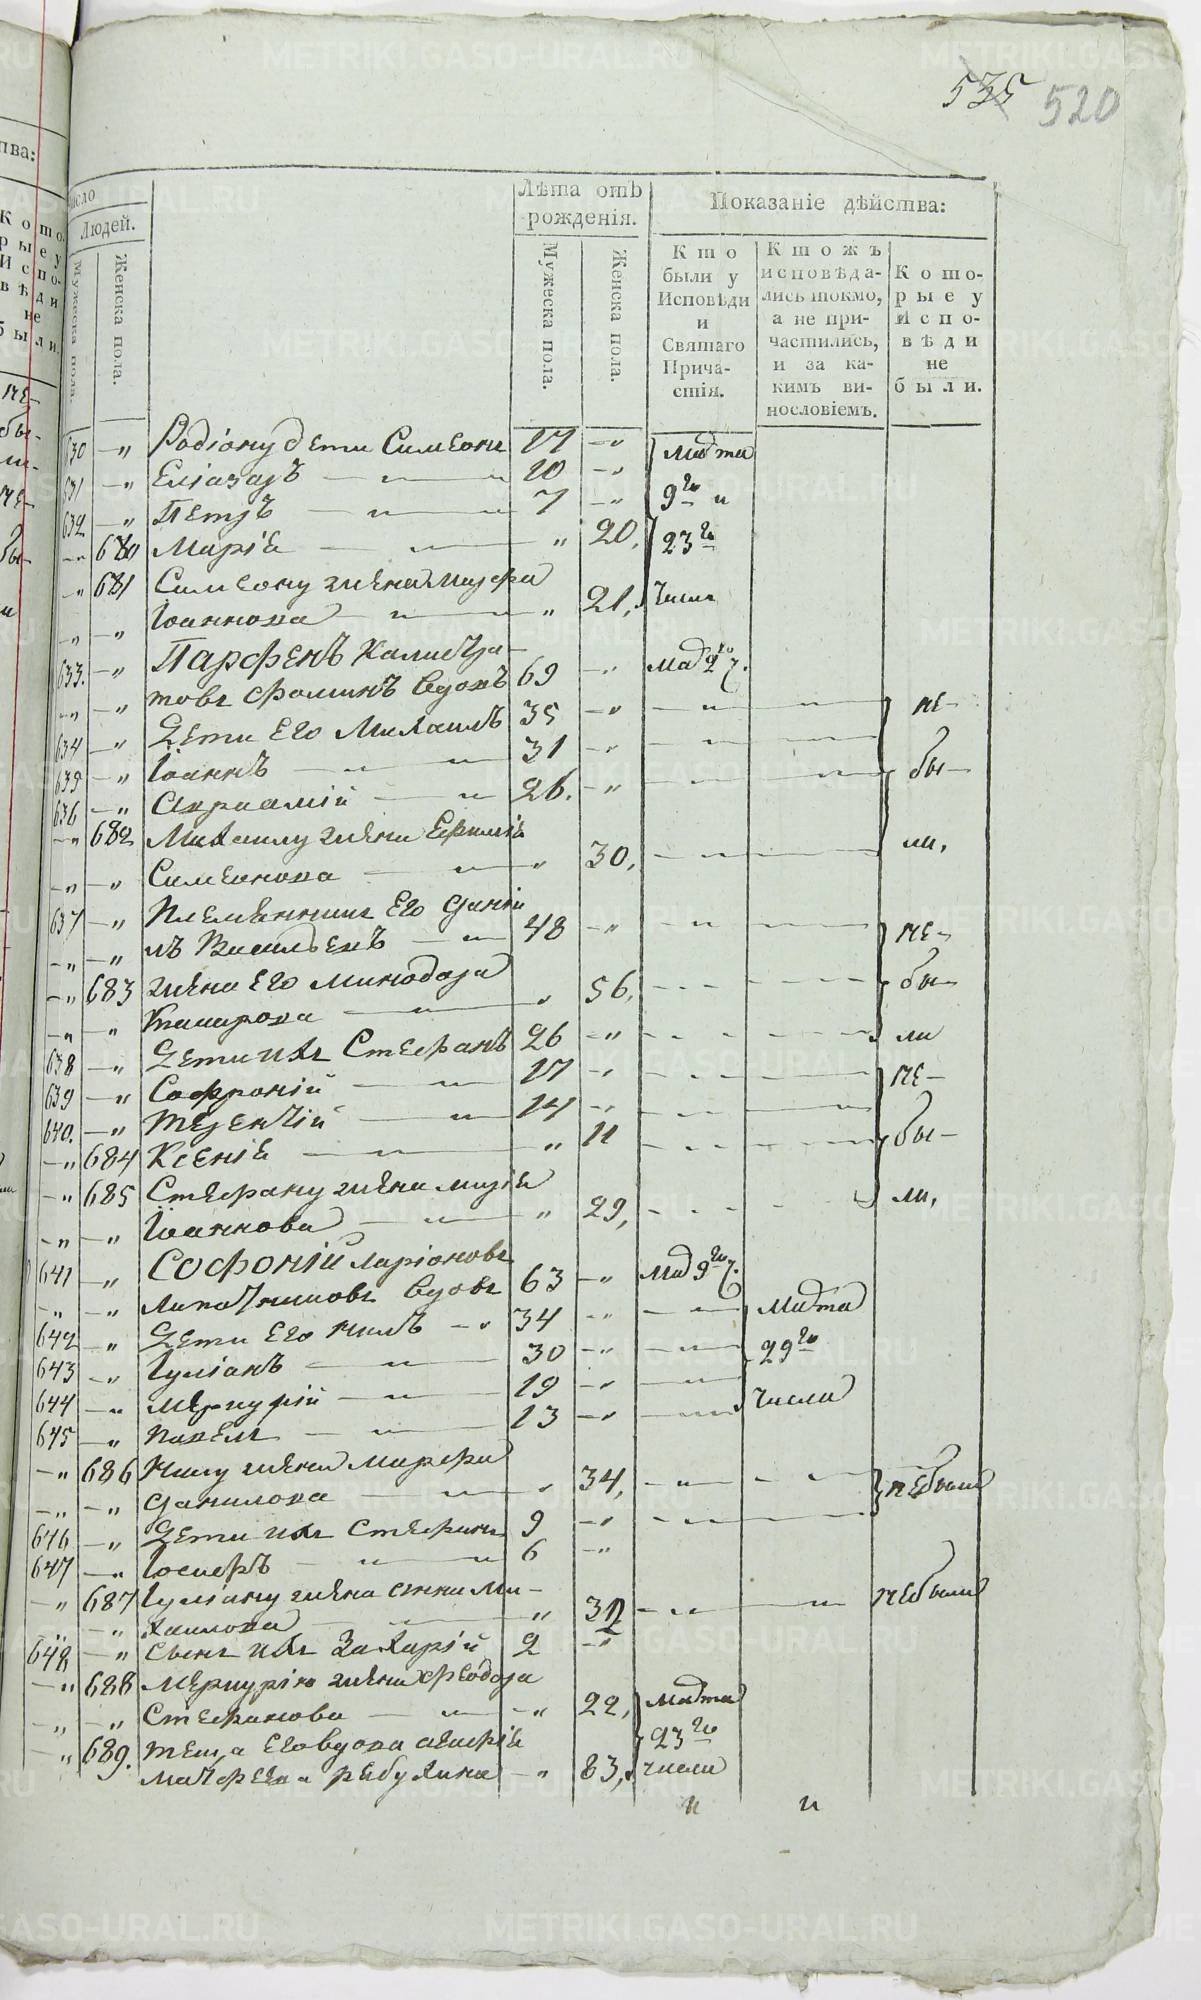 535 520
Число
Людей.
Мужеска пола.
Женска пола.
Лѣта отъ рожденія.
Мужеска пола.
Женска пола.
Показаніе дѣйства:
Кто были у Исповѣди и Святаго Причастія.
Ктожъ исповѣдались токмо, а не причастились, и за какимъ винословіемъ.
Которые у Исповѣди не были.
630 — „ Родіону дети Симеонъ 17 — „ Марта
631 — „ Еліазаръ — „ — „ 10 — „ 9го и
632 — „ Петръ — „ — „ 7 — „
— „ 680 Марія — „ — „ 20. 23го
— „ 681 Симеону жена Марфа
— „ — „ Іоаннова — „ — „ 21. числа
633. — „ Парфенъ Калистра-
— „ — „ товъ Фоминъ вдовъ 69 — „ Мар 9го ч.
634 — „ Дети Его Михаилъ 35 — „ не-
635 — „ Іоаннъ — „ — „ 31 — „ бы-
636 — „ Авраамій — „ 26. — „
— „ 682 Михаилу жена Ефимія ли,
— „ — „ Симеонова — „ „ 30,
637 — „ Племянникъ Его Дании
— „ — „ лъ Васильевъ — „ — 48 — „ не-
— „ 683 жена Его Минодора бы-
— „ — „ — „ „ 56,
638 — „ Дети ихъ Стефанъ 26 — „ ли
639 — „ Софроній — „ 17 — „ не-
640. — „ Терентій — „ 14 — „
— „ 684 Ксенія — „ 11 бы-
— „ 685 Стефану жена Марія
— „ — „ Іоаннова — „ — „ 29, ли,
641 — „ Софоній Ларіоновъ
— „ — „ вдовъ 63 — „ Мар 9го ч.
642 — „ Дети Его Нилъ — „ 34 — „ Марта
643 — „ Іуліанъ — „ 30 — „ 29го
644 — „ Меркурій — „ 19 — „ числа
645 — „ Павелъ — „ 13 — „
— „ 686 Нилу жена Марфа
— „ — „ Данилова — „ „ 34, небыли
646 — „ Дети ихъ Стефанъ 9 — „
647 — „ Іосифъ — „ — „ 6 — „
— „ 687 Іуліану жена Анна Ми- небыли
— „ — „ хаилова — „ 32
648 — „ Сынъ ихъ Захарій 2 — „
— „ 688 Меркурію жена Феодора
— „ — „ Стефанова — „ — „ 22, Марта
— „ 689. теща Его вдова 23го
— „ 83, числа